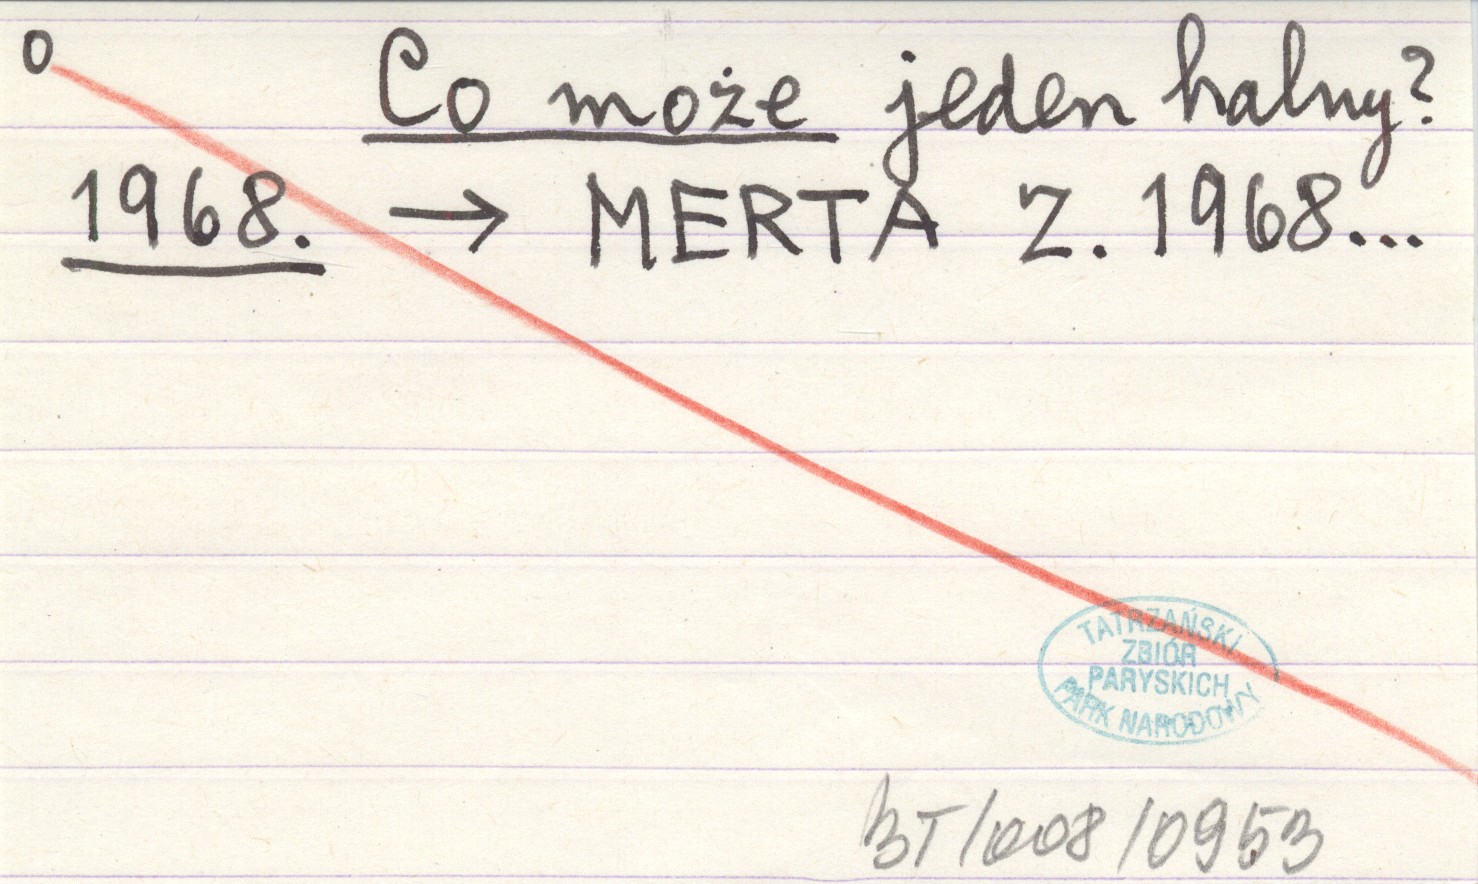 O Co może jeden halny?
1968. → MERTA Z. 1968...
TATRZAŃSKI
ZBIÓR
PARYSKICH
PARK NARODOWY
BT/008/0953